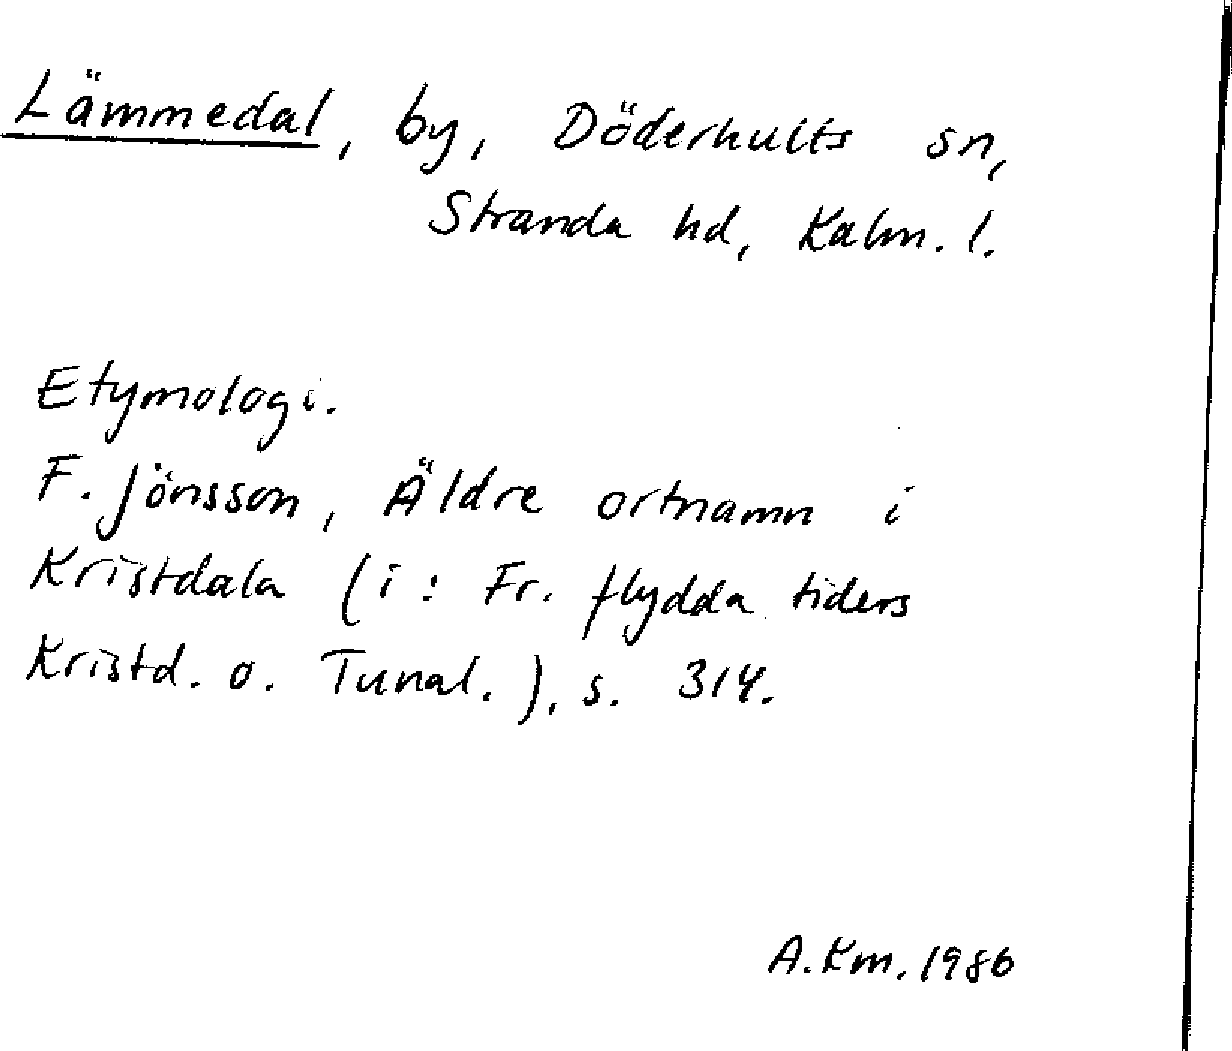 Lämmedal, by, Döderhults sn,
Stranda hd, Kalm. l.
Etymologi.
F. Jönsson, Äldre ortnamn i
Kristdala (i: Fr. flydda tiders
Kristd. o. Tunal.), s. 314.
A. Km. 1986